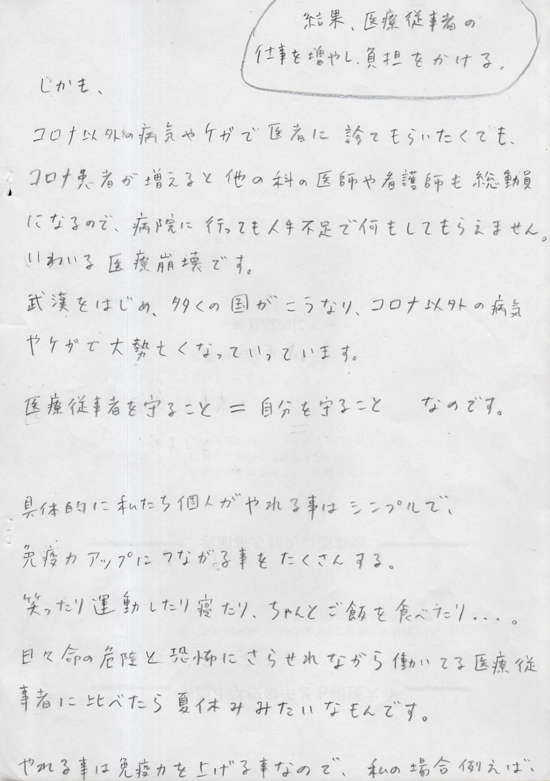 結果、医療従事者の
仕事を増やし、負担をかける。
しかも、
コロナ以外の病気やケガで医者に診てもらいたくても、
コロナ患者が増えると他の科の医師や看護師も総動員
になるので、病院に行っても人手不足で何もしてもらえません。
いわいる医療崩壊です。
武漢をはじめ、多くの国がこうなり、コロナ以外の病気
やケガで大勢亡くなっていっています。
医療従事者を守ること = 自分を守ること なのです。
具体的に私たち個人がやれる事はシンプルで、
免疫力アップにつながる事をたくさんする。
笑ったり運動したり寝たり、ちゃんとご飯を食べたり...。
日々命の危険と恐怖にさらせれながら働いてる医療従
事者に比べたら夏休みみたいなもんです。
やれる事は免疫力を上げる事なので、私の場合例えば、